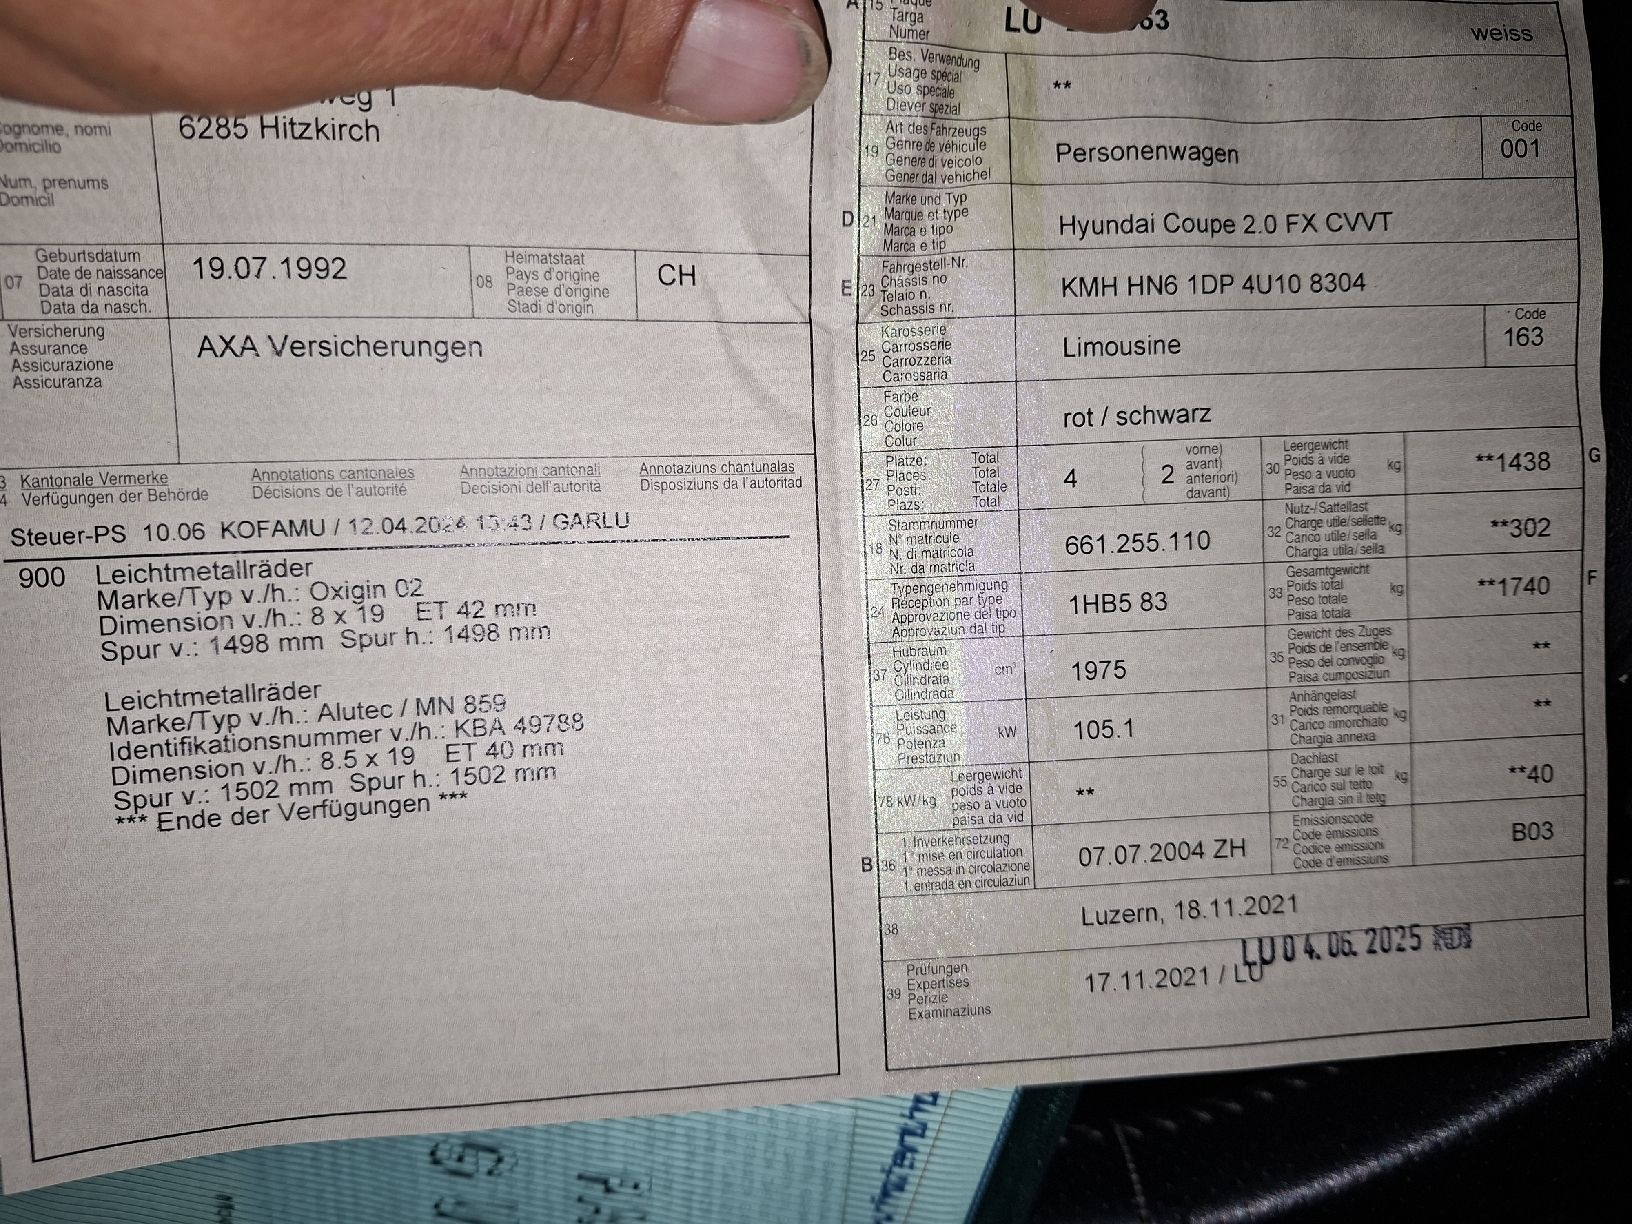 weg 1
6285 Hitzkirch
Cognome, nomi
Domicilio
Num, prenums
Domicil
07 Geburtsdatum
Date de naissance
Data di nascita
Data da nasch.
19.07.1992
08 Heimatstaat
Pays d'origine
Paese d'origine
Stadi d'origin
CH
Versicherung
Assurance
Assicurazione
Assicuranza
AXA Versicherungen
3 Kantonale Vermerke Annotations cantonales Annotazioni cantonali Annotaziuns chantunalas
4 Verfügungen der Behörde Décisions de l'autorité Decisioni dell'autorità Disposiziuns da l'autoritad
Steuer-PS 10.06 KOFAMU / 12.04.2024 13:43 / GARLU
900 Leichtmetallräder
Marke/Typ v./h.: Oxigin 02
Dimension v./h.: 8 x 19 ET 42 mm
Spur v.: 1498 mm Spur h.: 1498 mm
Leichtmetallräder
Marke/Typ v./h.: Alutec / MN 859
Identifikationsnummer v./h.: KBA 49788
Dimension v./h.: 8.5 x 19 ET 40 mm
Spur v.: 1502 mm Spur h.: 1502 mm
*** Ende der Verfügungen ***
A 15 Plaque
Targa
Numer
LU 63 weiss
17 Bes. Verwendung
Usage spécial
Uso speciale
Diever spezial
**
19 Art des Fahrzeugs
Genre de véhicule
Genere di veicolo
Gener dal vehichel
Personenwagen
Code
001
D 21 Marke und Typ
Marque et type
Marca e tipo
Marca e tip
Hyundai Coupe 2.0 FX CVVT
E 23 Fahrgestell-Nr.
Châssis no
Telaio n.
Schassis nr.
KMH HN6 1DP 4U10 8304
25 Karosserie
Carrosserie
Carrozzeria
Carossaria
Limousine
Code
163
26 Farbe
Couleur
Colore
Colur
rot / schwarz
27 Plätze: Total
Places Total
Posti: Totale
Plazs: Total
4
2 vorne)
avant)
anteriori)
davant)
30 Leergewicht
Poids à vide kg
Peso a vuoto
Paisa da vid
**1438 G
18 Stammnummer
N° matricule
N. di matricola
Nr. da matricla
661.255.110
32 Nutz-/Sattellast
Charge utile/sellette kg
Carico utile/sella
Chargia utila/sella
**302
24 Typengenehmigung
Réception par type
Approvazione del tipo
Approvaziun dal tip
1HB5 83
33 Gesamtgewicht
Poids total kg
Peso totale
Paisa totala
**1740 F
37 Hubraum
Cylindrée cm³
Cilindrata
Cilindrada
1975
35 Gewicht des Zuges
Poids de l'ensemble kg
Peso del convoglio
Paisa cumposiziun
**
76 Leistung
Puissance kW
Potenza
Prestaziun
105.1
31 Anhängelast
Poids remorquable kg
Carico rimorchiato
Chargia annexa
**
78 kW/kg Leergewicht
poids à vide
peso a vuoto
paisa da vid
**
55 Dachlast
Charge sur le toit kg
Carico sul tetto
Chargia sin il tetg
**40
B 36 1. Inverkehrsetzung
1re mise en circulation
1a messa in circolazione
1. entrada en circulaziun
07.07.2004 ZH
72 Emissionscode
Code émissions
Codice emissioni
Code d'emissiuns
B03
38
Luzern, 18.11.2021
LU 04.06.2025
39 Prüfungen
Expertises
Perizie
Examinaziuns
17.11.2021 / LU